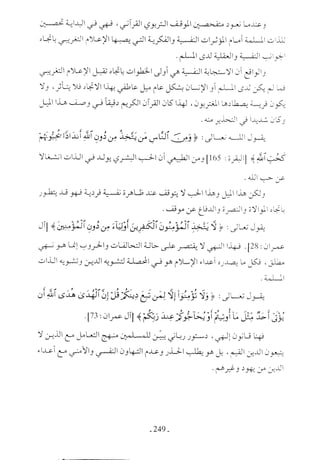 وعندما نعود متفحصين الموقف التربوي القرآني، فهي في البداية تحصين
للذات المسلمة أمام المؤثرات النفسية والفكرية التي يبصقها الإعلام التغريبي باتجاه
الجوانب النفسية والعقلية لدى المسلم.
والواقع أن الاستجابة النفسية هي أولى الخطوات باتجاه تقبل الإعلام التغريبي
فما لم يكن لدى المسلم أو الإنسان بشكل عام ميل عاطفي بهذا الاتجاه فلا يتأثر، ولا
يكون فريسة يصطادها المغتربون، لهذا كان القرآن الكريم دقيقاً في وصف هذا الميل
وكان شديداً في التحذير منه.
يقول الله تعالى: ﴿ وَمِنَ النَّاسِ مَن يَتَّخِذُ مِن دُونِ اللَّهِ أَندَادًا يُحِبُّونَهُمْ
كَحُبِّ اللَّهِ ﴾ [البقرة: 165] ومن الطبيعي أن الحب البشري يولد في الذات انشغالاً
عن حب الله.
ولكن هذا الميل وهذا الحب لا يتوقف عند ظاهرة نفسية فردية فهو قد يتطور
باتجاه الموالاة والنصرة والدفاع عن موقف.
يقول تعالى: ﴿ لَا يَتَّخِذِ الْمُؤْمِنُونَ الْكَافِرِينَ أَوْلِيَاءَ مِن دُونِ الْمُؤْمِنِينَ ﴾ [آل
عمران: 28]. فهذا النهي لا يقتصر على حالة التحالفات والحروب إنما هو
مطلق، فكل ما يصدره أعداء الإسلام هو في المحصلة لتشويه الدين وتشويه الذات
المسلمة.
يقول تعالى: ﴿ وَلَا تُؤْمِنُوا إِلَّا لِمَن تَبِعَ دِينَكُمْ قُلْ إِنَّ الْهُدَىٰ هُدَى اللَّهِ أَن
يُؤْتَىٰ أَحَدٌ مِّثْلَ مَا أُوتِيتُمْ أَوْ يُحَاجُّوكُمْ عِندَ رَبِّكُمْ ﴾ [آل عمران: 73].
فهنا قانون إلهي، دستور رباني يبين للمسلمين منهج التعامل مع الذين لا
يتبعون الدين القيم، بل هو يطلب الحذر وعدم التهاون النفسي والأمني مع أعداء
الدين من يهود وغيرهم.
-249-